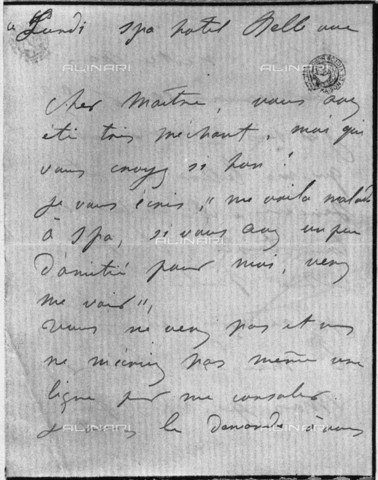 Lundi Spa hotel Belle vue
Cher Maître, vous avez
été très méchant, moi qui
vous croyez si bon!
Je vous écris, "me voilà malade
à Spa, si vous avez un peu
d'amitié pour moi, venez
me voir",
Vous ne venez pas et vous
ne m'écrivez pas même une
ligne pour me consoler.
Je le demande à vous
ALINARI
ALINARI
ALINARI